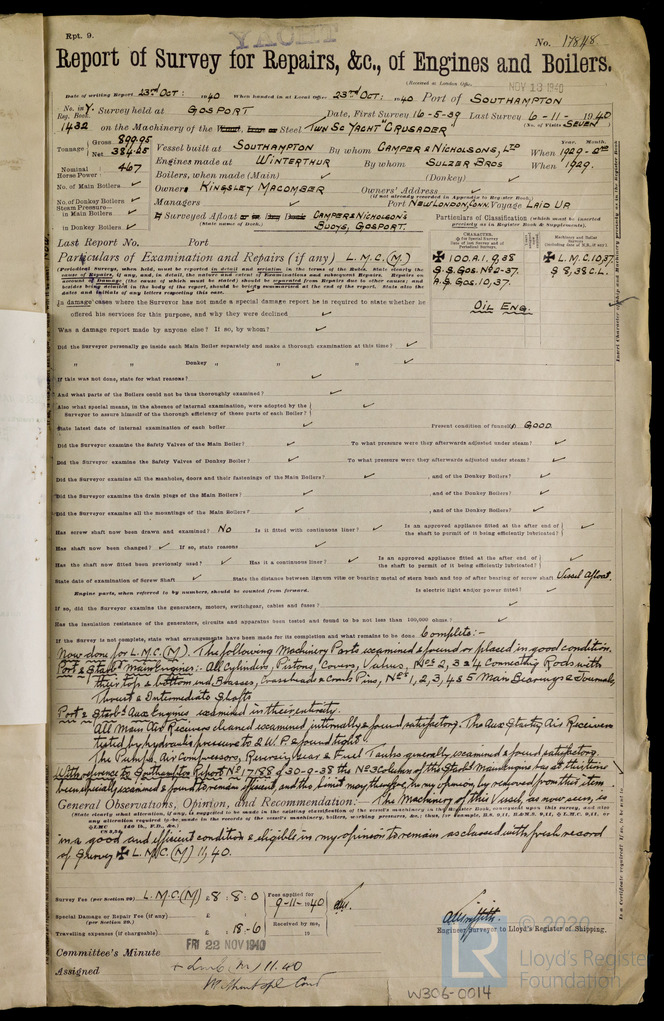 Rpt. 9.
YACHT
No. 17848.
Report of Survey for Repairs, &c., of Engines and Boilers.
(Received at London Office, NOV 13 1940
Date of writing Report 23rd Oct: 1940 When handed in at Local Office 23rd Oct: 1940 Port of SOUTHAMPTON
No. in Reg. Book. Y. Survey held at GOSPORT Date, First Survey 16-5-39 Last Survey 6-11-1940
1432 on the Machinery of the Steel TWN SC YACHT "CRUSADER" (No. of Visits SEVEN)
Tonnage Gross 899.95 Net 384.25 Vessel built at SOUTHAMPTON By whom CAMPER & NICHOLSONS, LTD When 1929-
Engines made at WINTERTHUR By whom SULZER BROS When 1929.
Nominal Horse Power 467 Boilers, when made (Main) ✓ (Donkey) ✓
No. of Main Boilers ✓ Owners KINGSLEY MACOMBER Owners' Address ✓
(if not already recorded in Appendix to Register Book.)
No. of Donkey Boilers ✓ Managers ✓ Port NEW LONDON, CONN. Voyage LAID UP
Steam Pressure— in Main Boilers ✓ If Surveyed Afloat or in Dry Dock CAMPER & NICHOLSON'S
in Donkey Boilers ✓ (State name of Dock.) BUOYS, GOSPORT.
Particulars of Classification (which must be inserted precisely as in Register Book & Supplements).
✠ 100.A.1. 9,38 ✠ L.M.C. 10,37.
S.S. Gos. No 2-37. S 8,38 C.L.
A.S. Gos. 10,37.
OIL ENG.
Last Report No. Port
Particulars of Examination and Repairs (if any) L.M.C. (M.)
In damage cases where the Surveyor has not made a special damage report he is required to state whether he
offered his services for this purpose, and why they were declined ✓
Was a damage report made by anyone else? If so, by whom? ✓
Did the Surveyor personally go inside each Main Boiler separately and make a thorough examination at this time? ✓
" " Donkey " " " ✓
If this was not done, state for what reasons? ✓
And what parts of the Boilers could not be thus thoroughly examined? ✓
Also what special means, in the absence of internal examination, were adopted by the
Surveyor to assure himself of the thorough efficiency of these parts of each Boiler? ✓
State latest date of internal examination of each boiler Present condition of funnel/s GOOD.
Did the Surveyor examine the Safety Valves of the Main Boiler? ✓ To what pressure were they afterwards adjusted under steam? ✓
Did the Surveyor examine the Safety Valves of Donkey Boiler? ✓ To what pressure were they afterwards adjusted under steam? ✓
Did the Surveyor examine all the manholes, doors and their fastenings of the Main Boilers? ✓, and of the Donkey Boilers? ✓
Did the Surveyor examine the drain plugs of the Main Boilers? ✓, and of the Donkey Boilers? ✓
Did the Surveyor examine all the mountings of the Main Boilers? ✓, and of the Donkey Boilers? ✓
Has screw shaft now been drawn and examined? No Is it fitted with continuous liner? ✓ Is an approved appliance fitted at the after end of the shaft to permit of it being efficiently lubricated? ✓
Has shaft now been changed? ✓ If so, state reasons ✓
Has the shaft now fitted been previously used? ✓ Has it a continuous liner? ✓ Is an approved appliance fitted at the after end of the shaft to permit of it being efficiently lubricated? ✓
State date of examination of Screw Shaft ✓ State the distance between lignum vitæ or bearing metal of stern bush and top of after bearing of screw shaft Vessel Afloat.
Engine parts, when referred to by numbers, should be counted from forward. Is electric light and/or power fitted? ✓
If so, did the Surveyor examine the generators, motors, switchgear, cables and fuses? ✓
Has the insulation resistance of the generators, circuits and apparatus been tested and found to be not less than 100,000 ohms? ✓
If the Survey is not complete, state what arrangements have been made for its completion and what remains to be done Complete:-
Now done for L.M.C. (M). The following Machinery Parts examined & found or placed in good condition.
Port & Starbd Main Engines:- All Cylinders, Pistons, Covers, Valves, Nos 2, 3 & 4 Connecting Rods with
their top & bottom end Brasses, Crossheads & Crank Pins, Nos 1, 2, 3, 4 & 5 Main Bearings & Journals,
Thrust & Intermediate Shafts
Port & Starbd Aux Engines examined in their entirety.
All Main Air Receivers cleaned examined internally & found satisfactory. The Aux Starting Air Receivers
tested by hydraulic pressure to 2 W.P. & found tight
The Pumps, Air Compressors, Reversing Gear & Fuel Tanks generally examined & found satisfactory.
With reference to Southampton Report No 17188 of 30-9-38 the No 3 Column of the Starbd Main Engine has at this time
been specially examined & found to remain efficient, and the limit may therefore in my opinion be removed from this item
General Observations, Opinion, and Recommendation:— The Machinery of this Vessel, as now seen, is
in a good and efficient condition & eligible in my opinion to remain as classed with fresh record
of Survey ✠ L.M.C. (M) 11,40.
Survey Fee (per Section 29) L.M.C. (M) £8 : 8 : 0 Fees applied for 9-11-1940
Special Damage or Repair Fee (if any) (per Section 29) £ : : Received by me,
Travelling expenses (if chargeable) £ : 18 - 6 19
Engineer Surveyor to Lloyd's Register of Shipping.
Committee's Minute FRI 22 NOV 1940
Assigned + Lmb (M) 11.40
© 2020
LR
Lloyd's Register
Foundation
W306-0014